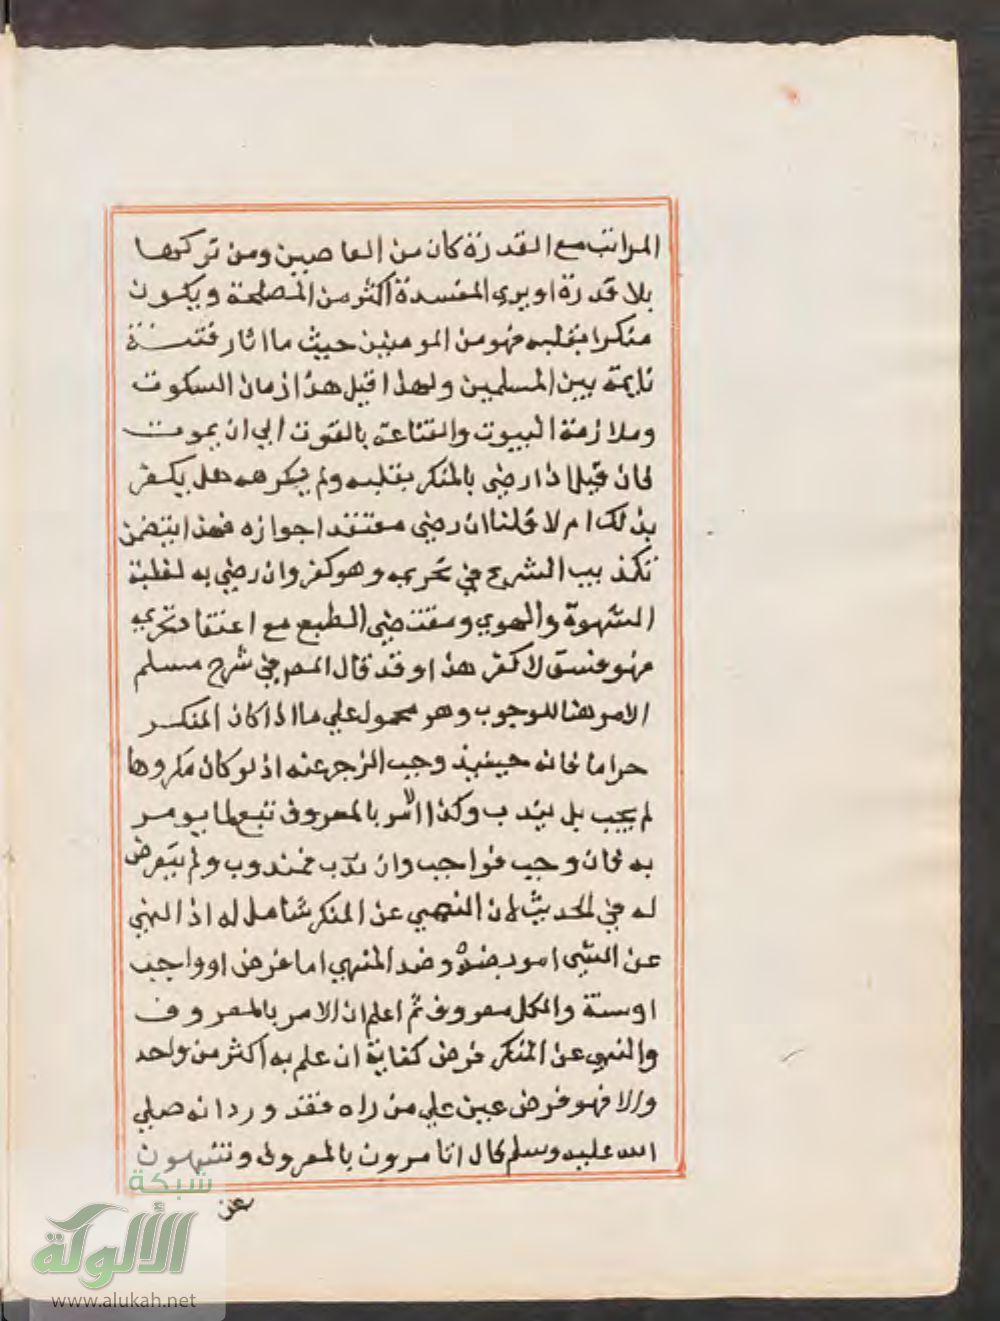 المراتب مع القدرة كان من العاصين ومن تركها
بلا قدرة او يري المفسدة اكثر من المصلحة ويكون
منكرا بقلبه فهو من المومنين حيث ما اثار فتنة
نايمة بين المسلمين ولهذا قيل هذا زمان السكوت
وملازمة البيوت والقناعة بالقوت الي ان يموت
فان قيل اذا رضي بالمنكر بقلبه ولم يكرهه هل يكفر
بذلك ام لا قلنا ان رضي معتقدا جوازه فهذا يتضمن
تكذيب الشرع في تحريمه وهو كفر وان رضي به لغلبة
الشهوة والهوي ومقتضي الطبع مع اعتقاد تحريمه
فهو فسق لا كفر هذا وقد قال المص في شرح مسلم
الامر هنا للوجوب وهو محمول علي ما اذا كان المنكر
حراما فانه حينيذ وجب الزجر عنه اذ لو كان مكروها
لم يجب بل يندب وكذا الامر بالمعروف تبع لما يومر
به فان وجب فواجب وان ندب فمندوب ولم يتعرض
له في الحديث لان النهي عن المنكر شامل له اذ النهي
عن الشي امر بضده وضد المنهي اما فرض او واجب
او سنة والكل معروف ثم اعلم ان الامر بالمعروف
والنهي عن المنكر فرض كفاية ان علم به اكثر من واحد
والا فهو فرض عين علي من راه فقد ورد انه صلي
الله عليه وسلم قال اتامرون بالمعروف وتنتهون
عن
شبكة
الألوكة
www.alukah.net